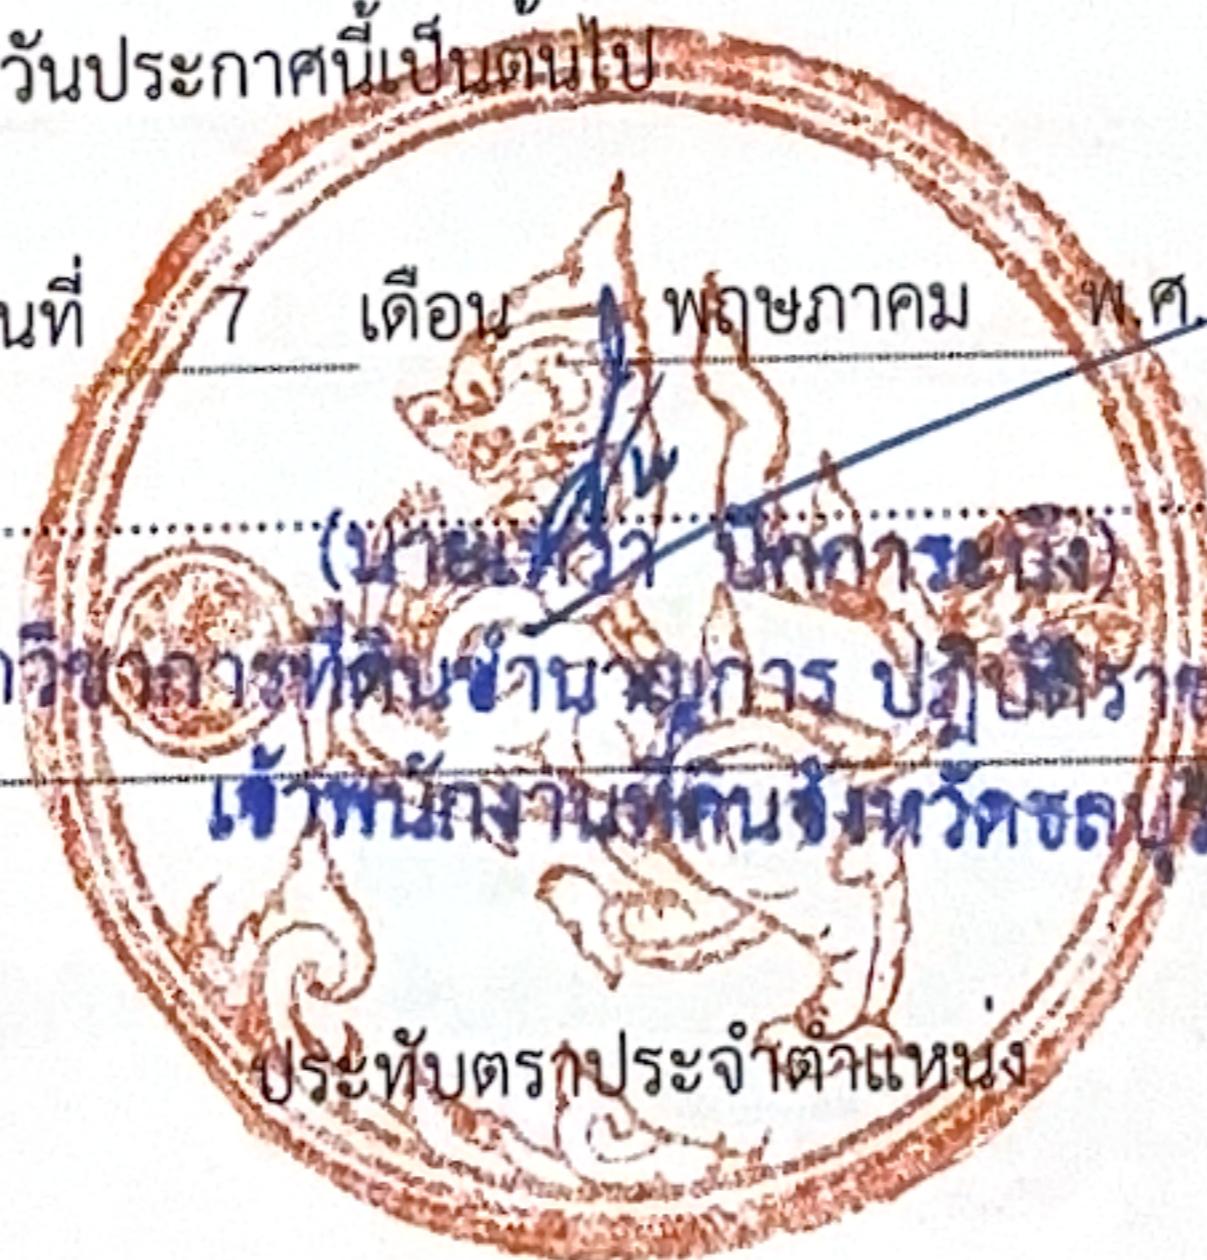 วันประกาศนี้เป็นต้นไป
นที่ 7 เดือน พฤษภาคม พ.ศ.
วิชาการที่ดินชำนาญการ ปฏิบัติราช
เจ้าพนักงานที่ดินจังหวัดชลบุรี
ประทับตราประจำตำแหน่ง